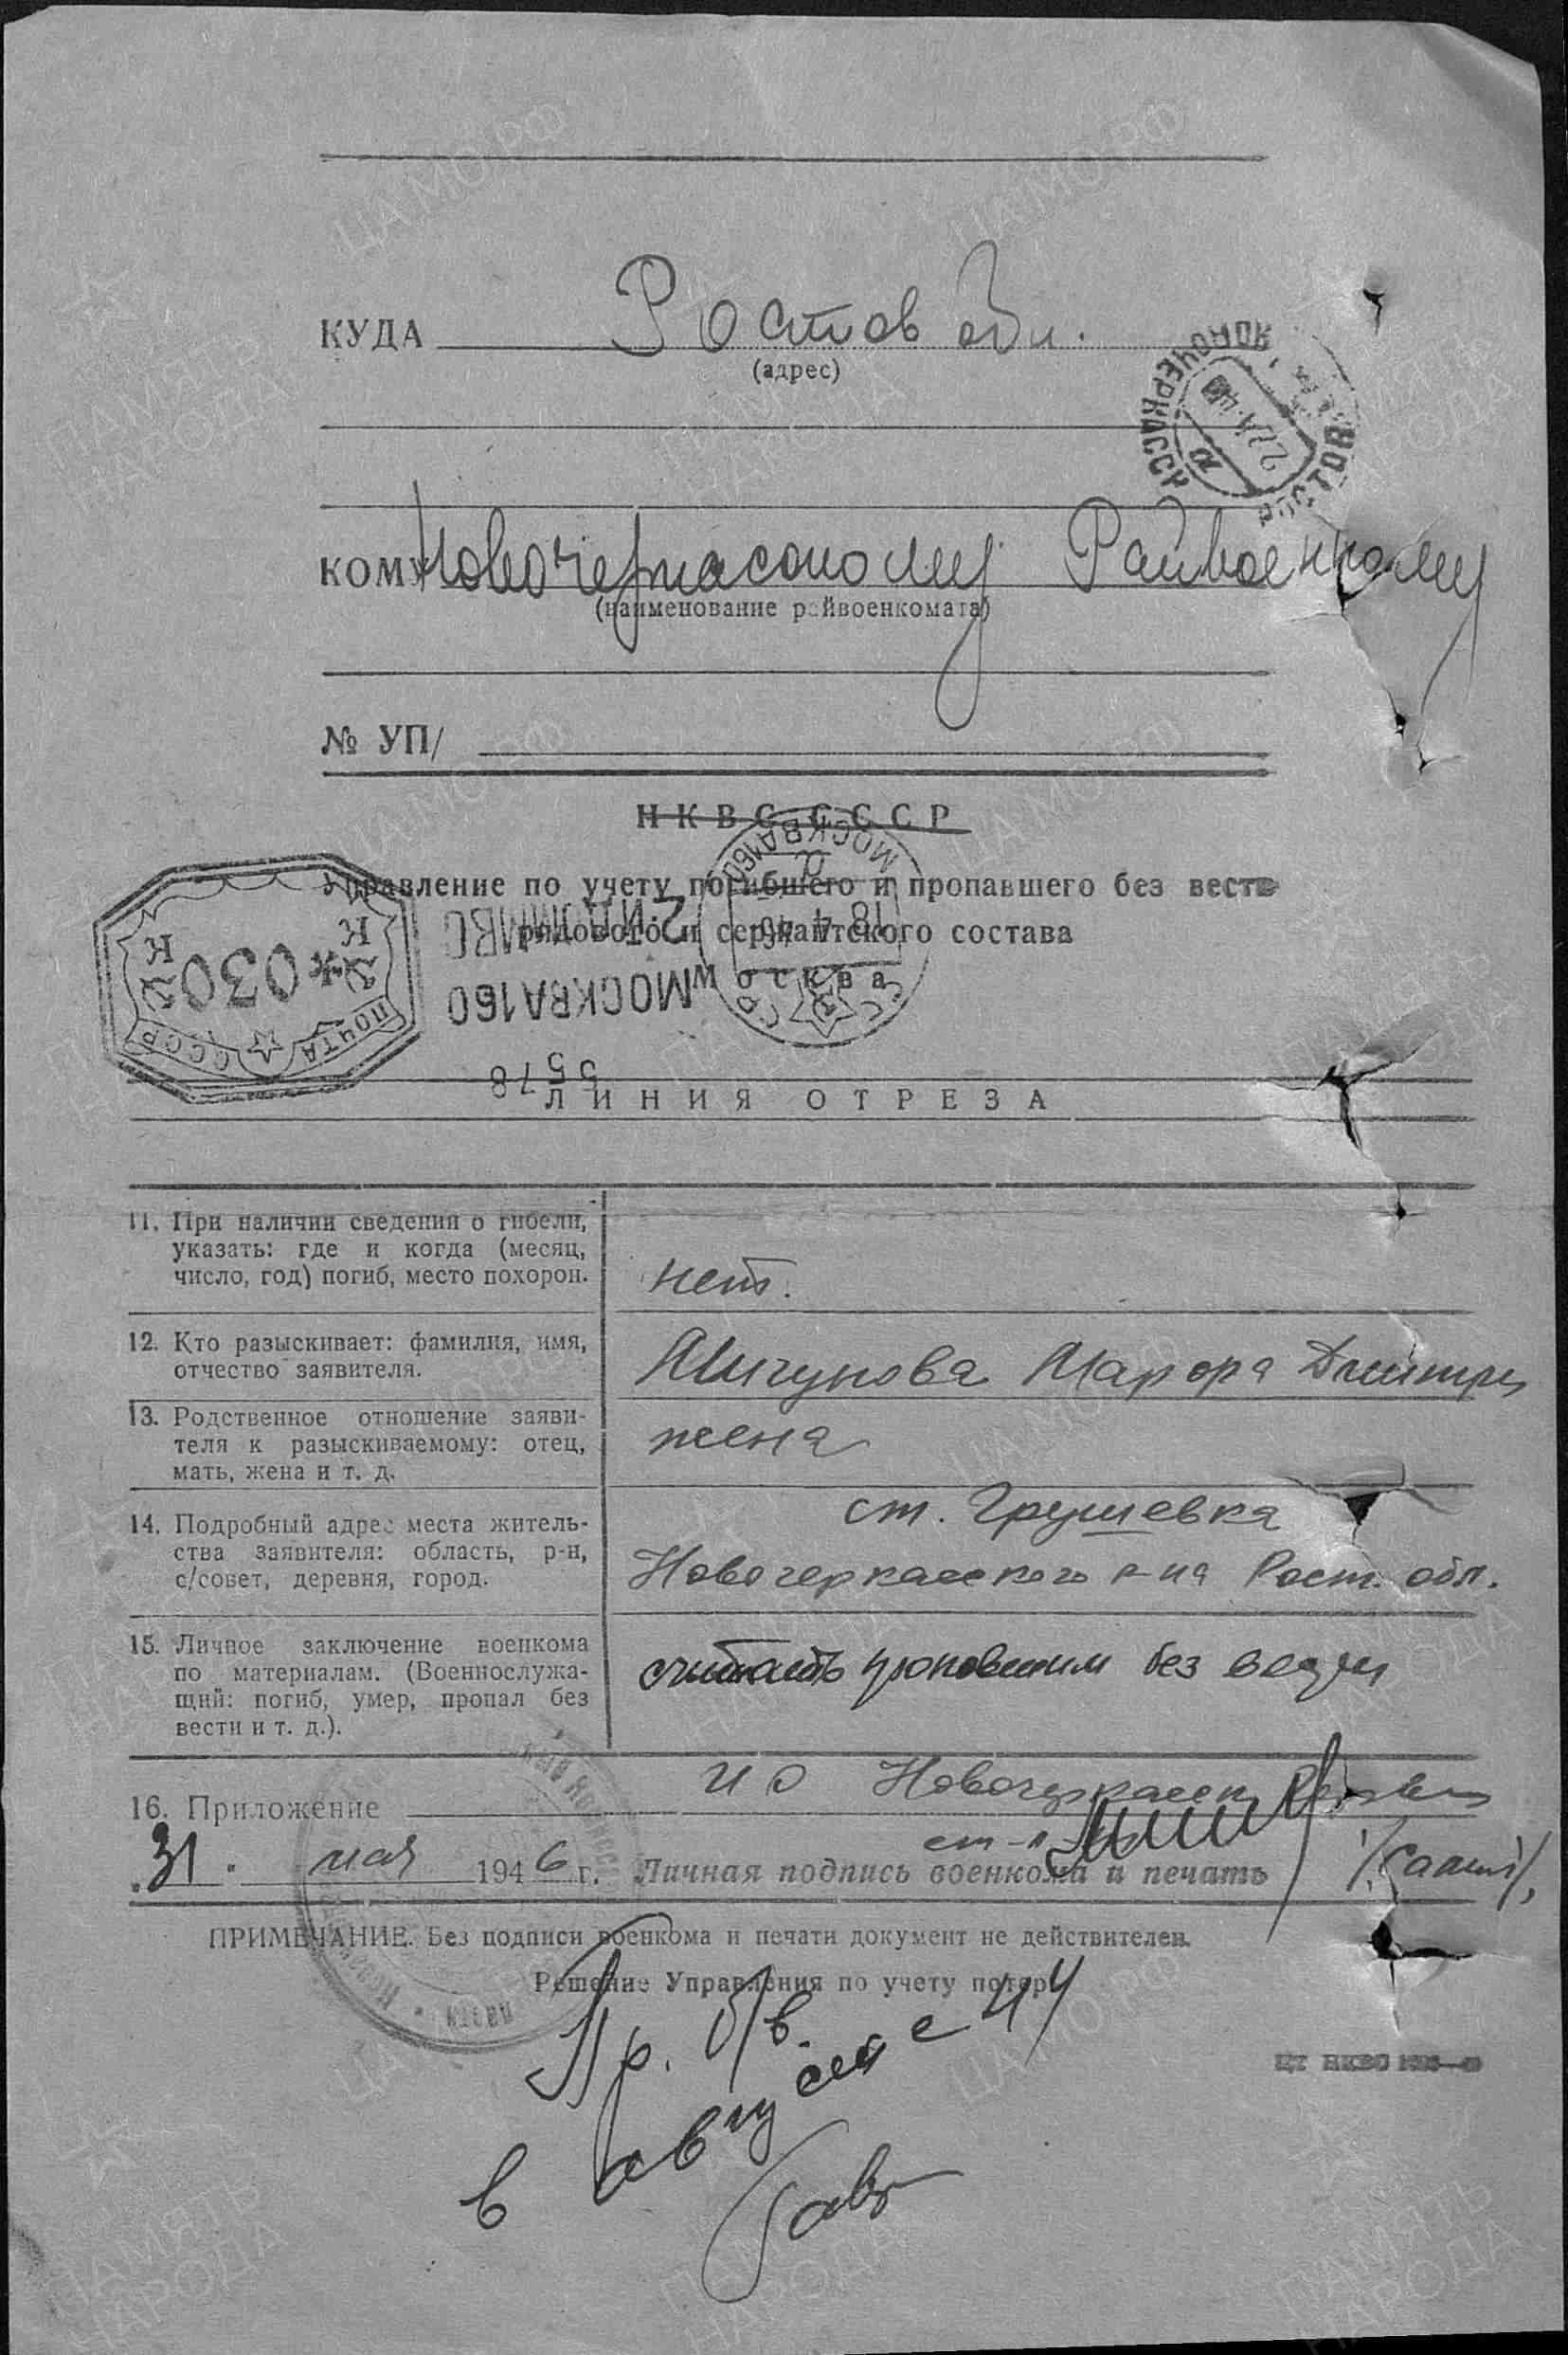 КУДА Ростов обл.
(адрес)
НОВОЧЕРКАССК
РОСТОВ
КОМУ Новочеркасскому Райвоенкому
(наименование райвоенкомата)
№ УП/
НКВС СССР
Управление по учету погибшего и пропавшего без вести
рядового и сержантского состава
Москва
МОСКВА 160
18 4 46
МОСКВА 160
5578
030
ПОЧТА СССР
ЛИНИЯ ОТРЕЗА
11. При наличии сведений о гибели,
указать: где и когда (месяц,
число, год) погиб, место похорон.
нет.
12. Кто разыскивает: фамилия, имя,
отчество заявителя.
13. Родственное отношение заяви-
теля к разыскиваемому: отец,
мать, жена и т. д.
жена
14. Подробный адрес места житель-
ства заявителя: область, р-н,
с/совет, деревня, город.
ст. Грушевка
Новочеркасского р-на Рост. обл.
15. Личное заключение военкома
по материалам. (Военнослужа-
щий: погиб, умер, пропал без
вести и т. д.).
считать пропавшим без вести
ИО Новочеркасск
16. Приложение
31. мая 1946 г. Личная подпись военкома и печать
ПРИМЕЧАНИЕ. Без подписи военкома и печати документ не действителен.
Решение Управления по учету потерь
Пр. б/в.
в августе 44
ЦАМО.РФ
ПАМЯТЬ
НАРОДА